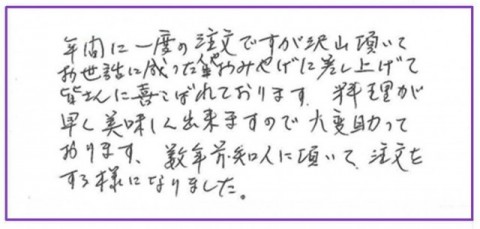 年間に一度の注文ですが沢山頂いて
お世話に成ったおみやげに差し上げて
皆さんに喜こばれております。料理が
早く美味しく出来ますので大変助って
おります。数年前知人に頂いて、注文を
する様になりました。